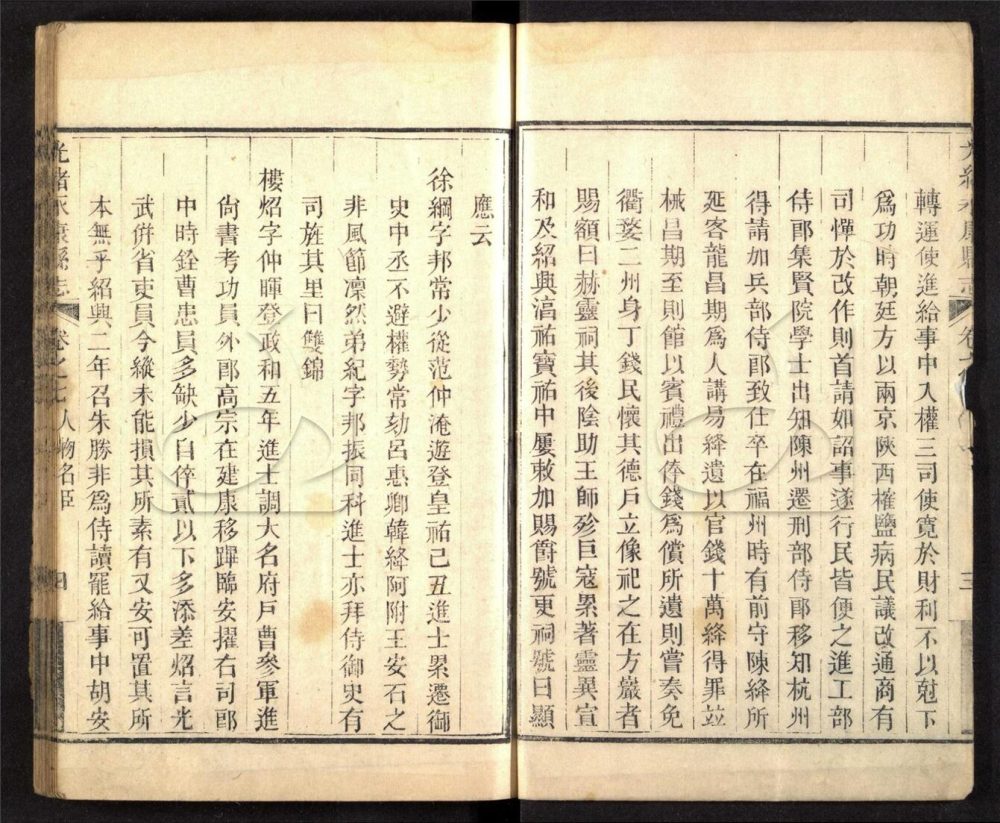 轉運使進給事中入權三司使寬於財利不以尅下
爲功時朝廷方以兩京陜西榷鹽病民議改通商有
司憚於改作則首請如詔事遂行民皆便之進工部
侍郎集賢院學士出知陳州遷刑部侍郎移知杭州
得請加兵部侍郎致仕卒在福州時有前守陳絳所
延客龍昌期爲人講易絳遺以官錢十萬絳得罪竝
械昌期至則館以賓禮出俸錢爲償所遺則嘗奏免
衢婺二州身丁錢民懷其德戶立像祀之在方巖者
賜額曰赫靈祠其後陰助王師殄巨寇累著靈異宣
和及紹興湻祐寶祐中屢敕加賜爵號更祠號曰顯
應云
徐綱字邦常少從范仲淹遊登皇祐己丑進士累遷御
史中丞不避權勢常劾呂惠卿韓絳阿附王安石之
非風節凜然弟紀字邦振同科進士亦拜侍御史有
司旌其里曰雙錦
樓炤字仲暉登政和五年進士調大名府戶曹參軍進
尙書考功員外郎高宗在建康移蹕臨安擢右司郎
中時銓曹患員多缺少自倅貳以下多添差炤言光
武併省吏員今縱未能損其所素有又安可置其所
本無乎紹興二年召朱勝非爲侍讀罷給事中胡安
光緒永康縣志 卷之七 人物名臣 四